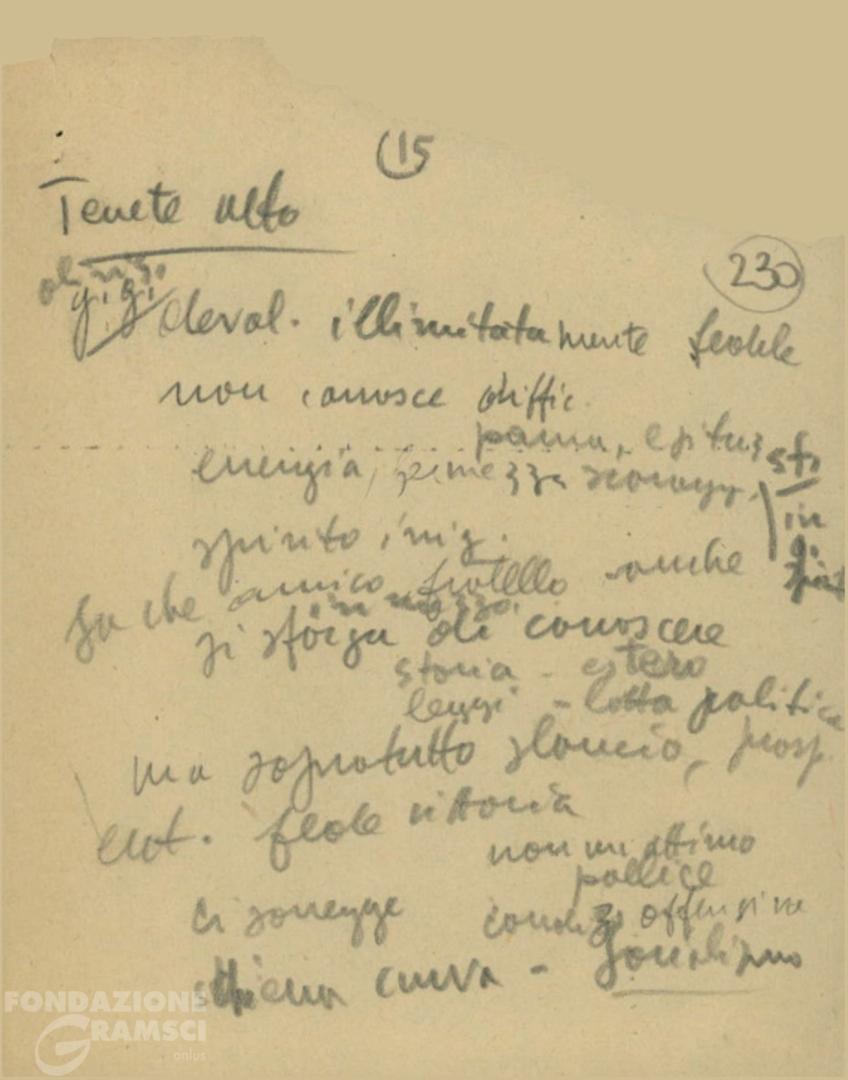 15
Tenete alto
230
gigi deval. illimitatamente fedele
non conosce diffic.
energia, fermezza
spirito iniz.
sa che amico fratello anche
in mezzo
si sforza di conoscere
storia - estero
leggi - lotta politica
ma sopratutto slancio, prosp.
ent. fede vittoria
non un attimo
pollice
ci sorregge condiz offensiva
schiena curva - Socialismo
FONDAZIONE
GRAMSCI
onlus